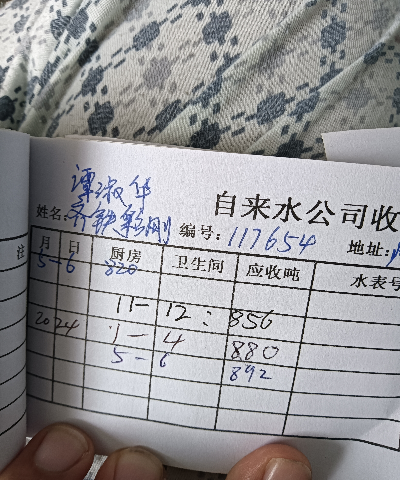 谭淑华
姓名: 齐铁彩刚 编号: 117654 地址:
自来水公司收
注 月 日 厨房 卫生间 应收吨 水表号
5-6 820
11-12: 856
2024 1-4 880
5-6 892